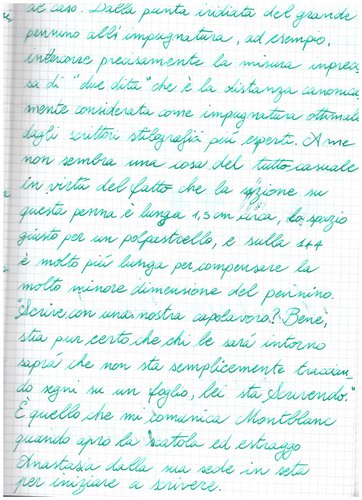 al caso. Dalla punta iridiata del grande
pennino all'impugnatura, ad esempio,
intercorre precisamente la misura impreci
sa di "due dita" che è la distanza canonica
mente considerata come impugnatura ottimale
dagli scrittori stilografici più esperti. A me
non sembra una cosa del tutto casuale
in virtù del fatto che la sezione su
questa penna è lunga 1,5 cm circa, lo spazio
giusto per un polpastrello, e sulla 144
è molto più lunga per compensare la
molto minore dimensione del pennino.
"Scrive con una nostra capolavoro? Bene,
stia pur certo che chi le sarà intorno
saprà che non sta semplicemente traccian
do segni su un foglio, lei sta Scrivendo."
È quello che mi comunica Montblanc
quando apro la scatola ed estraggo
Anastasia dalla sua sede in seta
per iniziare a scrivere.